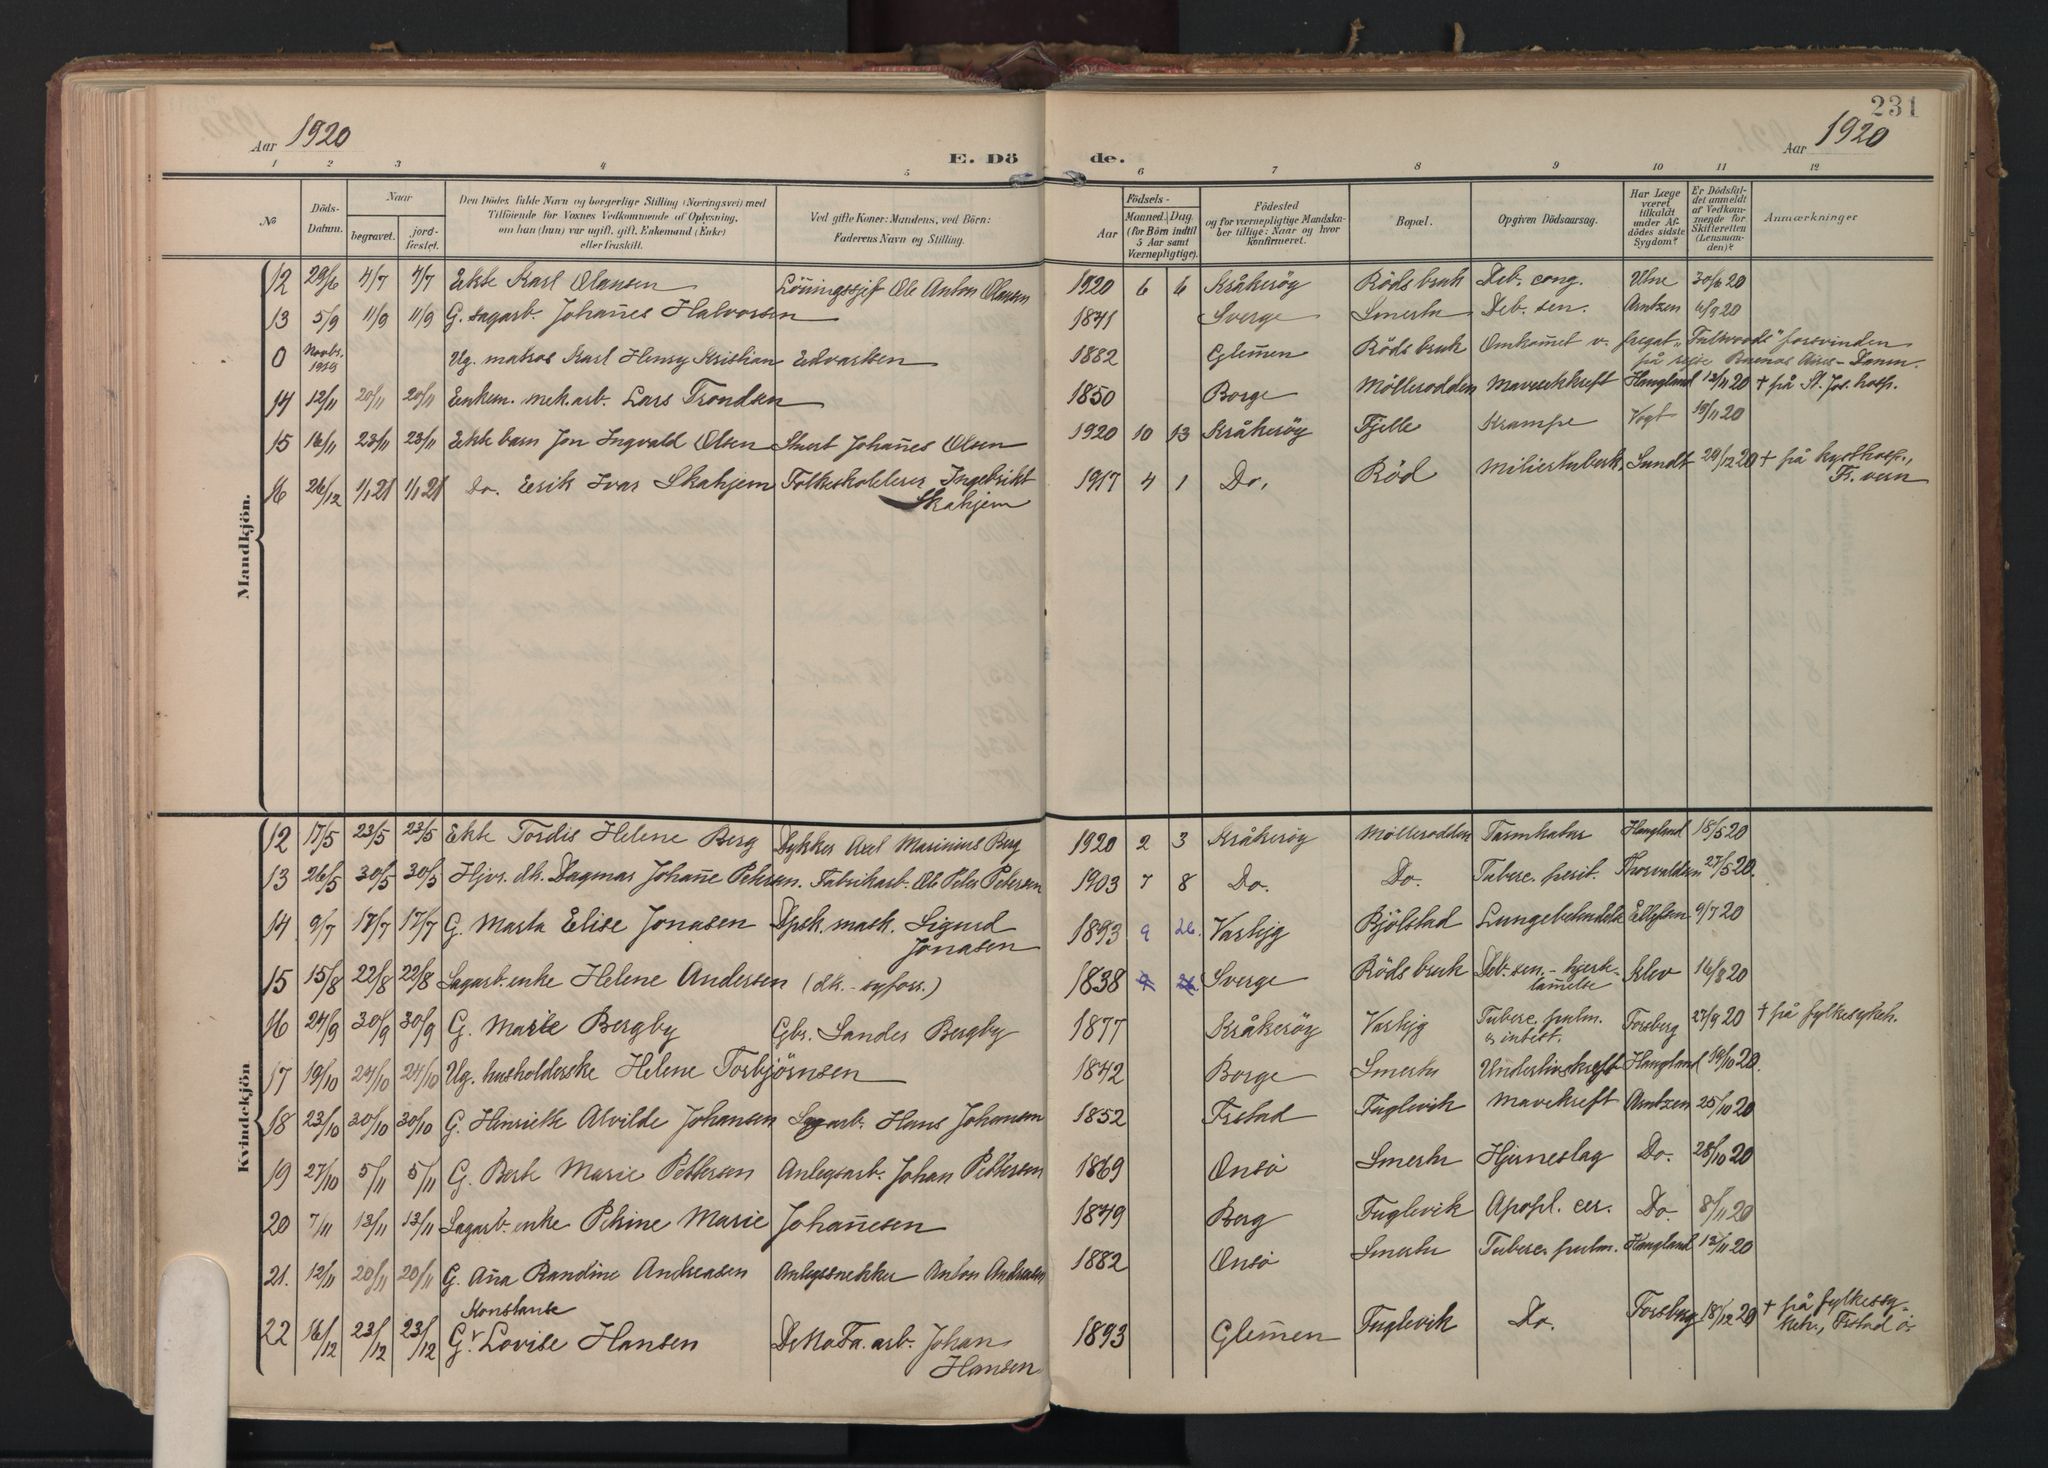 231
Aar 1920
Aar 1920
E. Dö
de.
1 2 3 4 5 6 7 8 9 10 11 12
No
Döds-Datum.
Naar
begravet.
jord-fæstet.
Den Dödes fulde Navn og borgerlige Stilling (Næringsvei) med
Tilföiende for Voxnes Vedkommende af Oplysning,
om han (hun) var ugift, gift, Enkemand (Enke)
eller fraskilt.
Ved gifte Koner: Mandens, ved Börn:
Faderens Navn og Stilling.
Födsels-
Aar
Maaned. Dag.
(for Börn indtil
5 Aar samt
Værnepligtige).
Födested
og for værnepligtige Mandska-
ber tillige: Naar og hvor
konfirmeret.
Bopæl.
Opgiven Dödsaarsag.
Har Læge
været
tilkaldt
under Af-
dödes sidste
Sygdom?
Er Dödsfal-
det anmeldt
af Vedkom-
mende for
Skifteretten
(Lensman-
den)?
Anmærkninger
Mandkjön.
12 29/6 4/7 4/7 Ekte Karl Olausen Ole Anton Olausen 1920 6 6 Kråkeröy Röds bruk Deb. cong. 30/6 20
13 5/9 11/9 11/9 G. sagarb. Johan̄es Halvorsen 1841 Sverge Smertu Deb. sen. Arntzen 6/9 20
0 Novbr. 1919 Ug. matros Karl Henry Kristian Edvartsen 1882 Glem̄en Röds bruk Omkom̄et v. fregat „Fulwoods" forsvinden
på reise Buenos Aires–Danm.
14 12/11 20/11 20/11 Enkem. mek. arb. Lars Trondsen 1850 Borge Möllerodden Mavesekkreft Haugland 13/11 20 † på St. Jos. hosp.
15 16/11 23/11 23/11 Ekte barn Jon Ingvald Olsen Stuert Johan̄es Olsen 1920 10 13 Kråkeröy Fjelle Krampe Vogt 19/11 20
16 26/12 1/1 21 1/1 21 Do. Eerik Ivar Skahjem Folkeskolelærer Ingebrikt
Skahjem 1917 4 1 Do. Röd Miliertuberk. Sundt 29/12 20 † på kysthosp.,
Fr. vern
Kvindekjön
12 17/5 23/5 23/5 Ekte Tordis Helene Berg Dykker Axel Marinius Berg 1920 2 3 Kråkeröy Möllerodden Tarmkatar Haugland 18/5 20
13 26/5 30/5 30/5 Hjvr. dk. Dagmar Johan̄e Petersen. Fabrikarb. Ole Peter Petersen 1903 7 8 Do. Do. Tuberc. perit. Thorvaldsen 27/5 20.
14 9/7 17/7 17/7 G. Marta Elise Jonasen Dpsk. mask. Sigurd
Jonasen 1893 9 26. Varhjg Bjölstad Lungebetendelse Ellefsen 9/7 20
15 15/8 22/8 22/8 Sagarb. enke Helene Andersen (dk. - syfors.) 1838 Sverge Röds bruk Deb. sen. - hjerte-
lam̄else Klev 16/8 20
16 24/9 30/9 30/9 G. Marie Bergby Gbr. Sander Bergby 1877 Kråkeröy Varhjg Tuberc. pulm.
& intest. Forsberg 27/9 20 † på fylkesykeh.
17 19/10 24/10 24/10 Ug. husholderske Helene Torbjørnsen 1842 Borge Smertu Underlivskreft Haugland 19/10 20.
18 23/10 30/10 30/10 G. Henriette Alvilde Johansen Sagarb. Hans Johansen 1852 Frstad Fuglevik Mavekreft Arntzen 25/10 20
19 27/10 5/11 5/11 G. Berte Marie Pettersen Anlegsarb. Johan Pettersen 1869 Onsö Smertu Hjerneslag Do. 28/10 20
20 7/11 13/11 13/11 Sagarb. enke Petrine Marie Johan̄esen 1849 Berg Fuglevik Apopl. cer. Do. 8/11 20
21. 12/11 20/11 20/11 G. An̄a Randine Andreasen Anlegssnekker Anton Andreasen 1882 Onsö Smertu Tuberc. pulm. Haugland 13/11 20
Konstanse
22 16/12 23/12 23/12 G. Lovise Hansen DeNoFa. arb. Johan
Hansen 1893 Glem̄en Fuglevik Do. Forsberg 18/12 20 † på fylkessy-
keh., Frstad